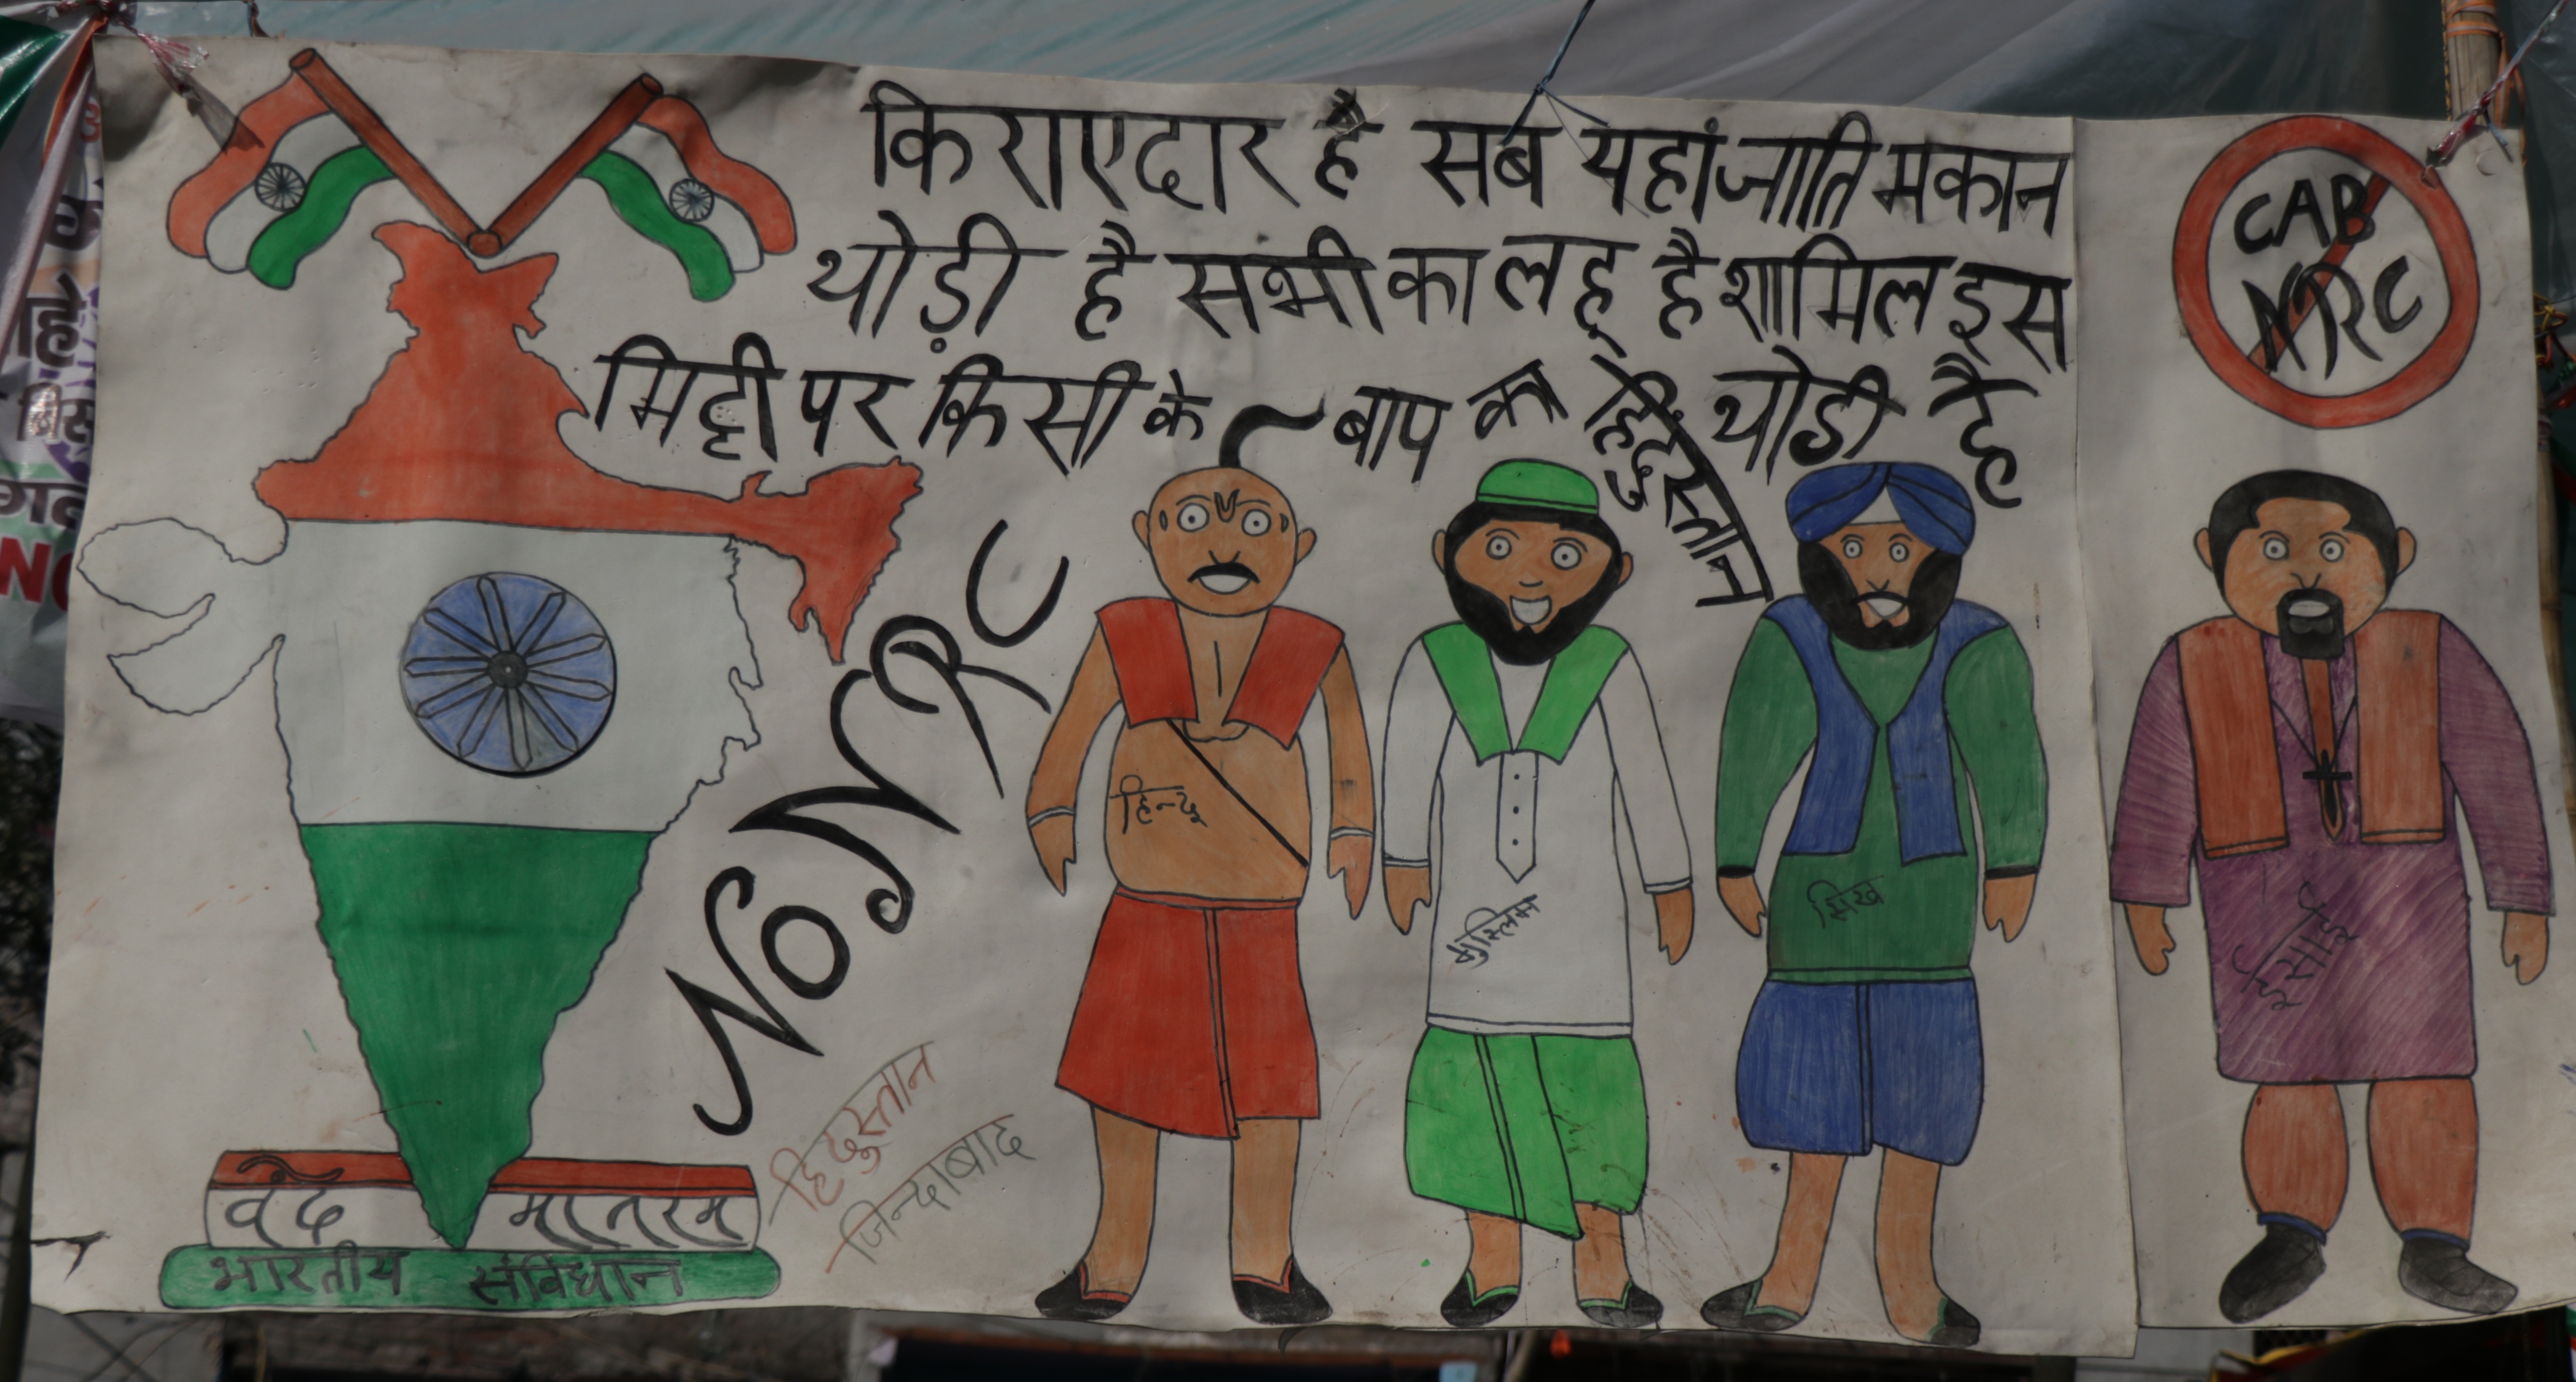 किराएदार है सब यहां जाति मकान
थोड़ी है सभी का लहू है शामिल इस
मिट्टी पर किसी के बाप का हिंदुस्तान थोडी है
CAB
NRC
NO NRC
हिन्दू
मुस्लिम
सिख
ईसाई
हिंदुस्तान
जिन्दाबाद
वंदे मातरम
भारतीय संविधान